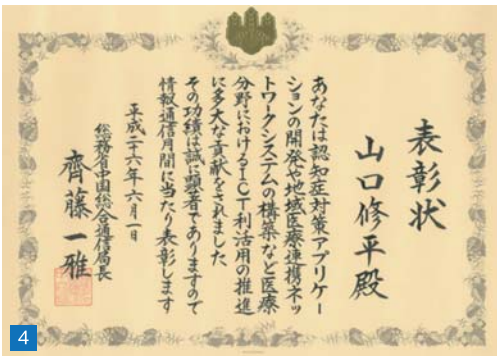 表彰状
山口修平殿
あなたは認知症対策アプリケー
ションの開発や地域医療連携ネッ
トワークシステムの構築など医療
分野におけるICT利活用の推進
に多大な貢献をされました
その功績は誠に顕著でありますので
情報通信月間に当たり表彰します
平成二十六年六月一日
総務省中国総合通信局長
齊藤一雅
4